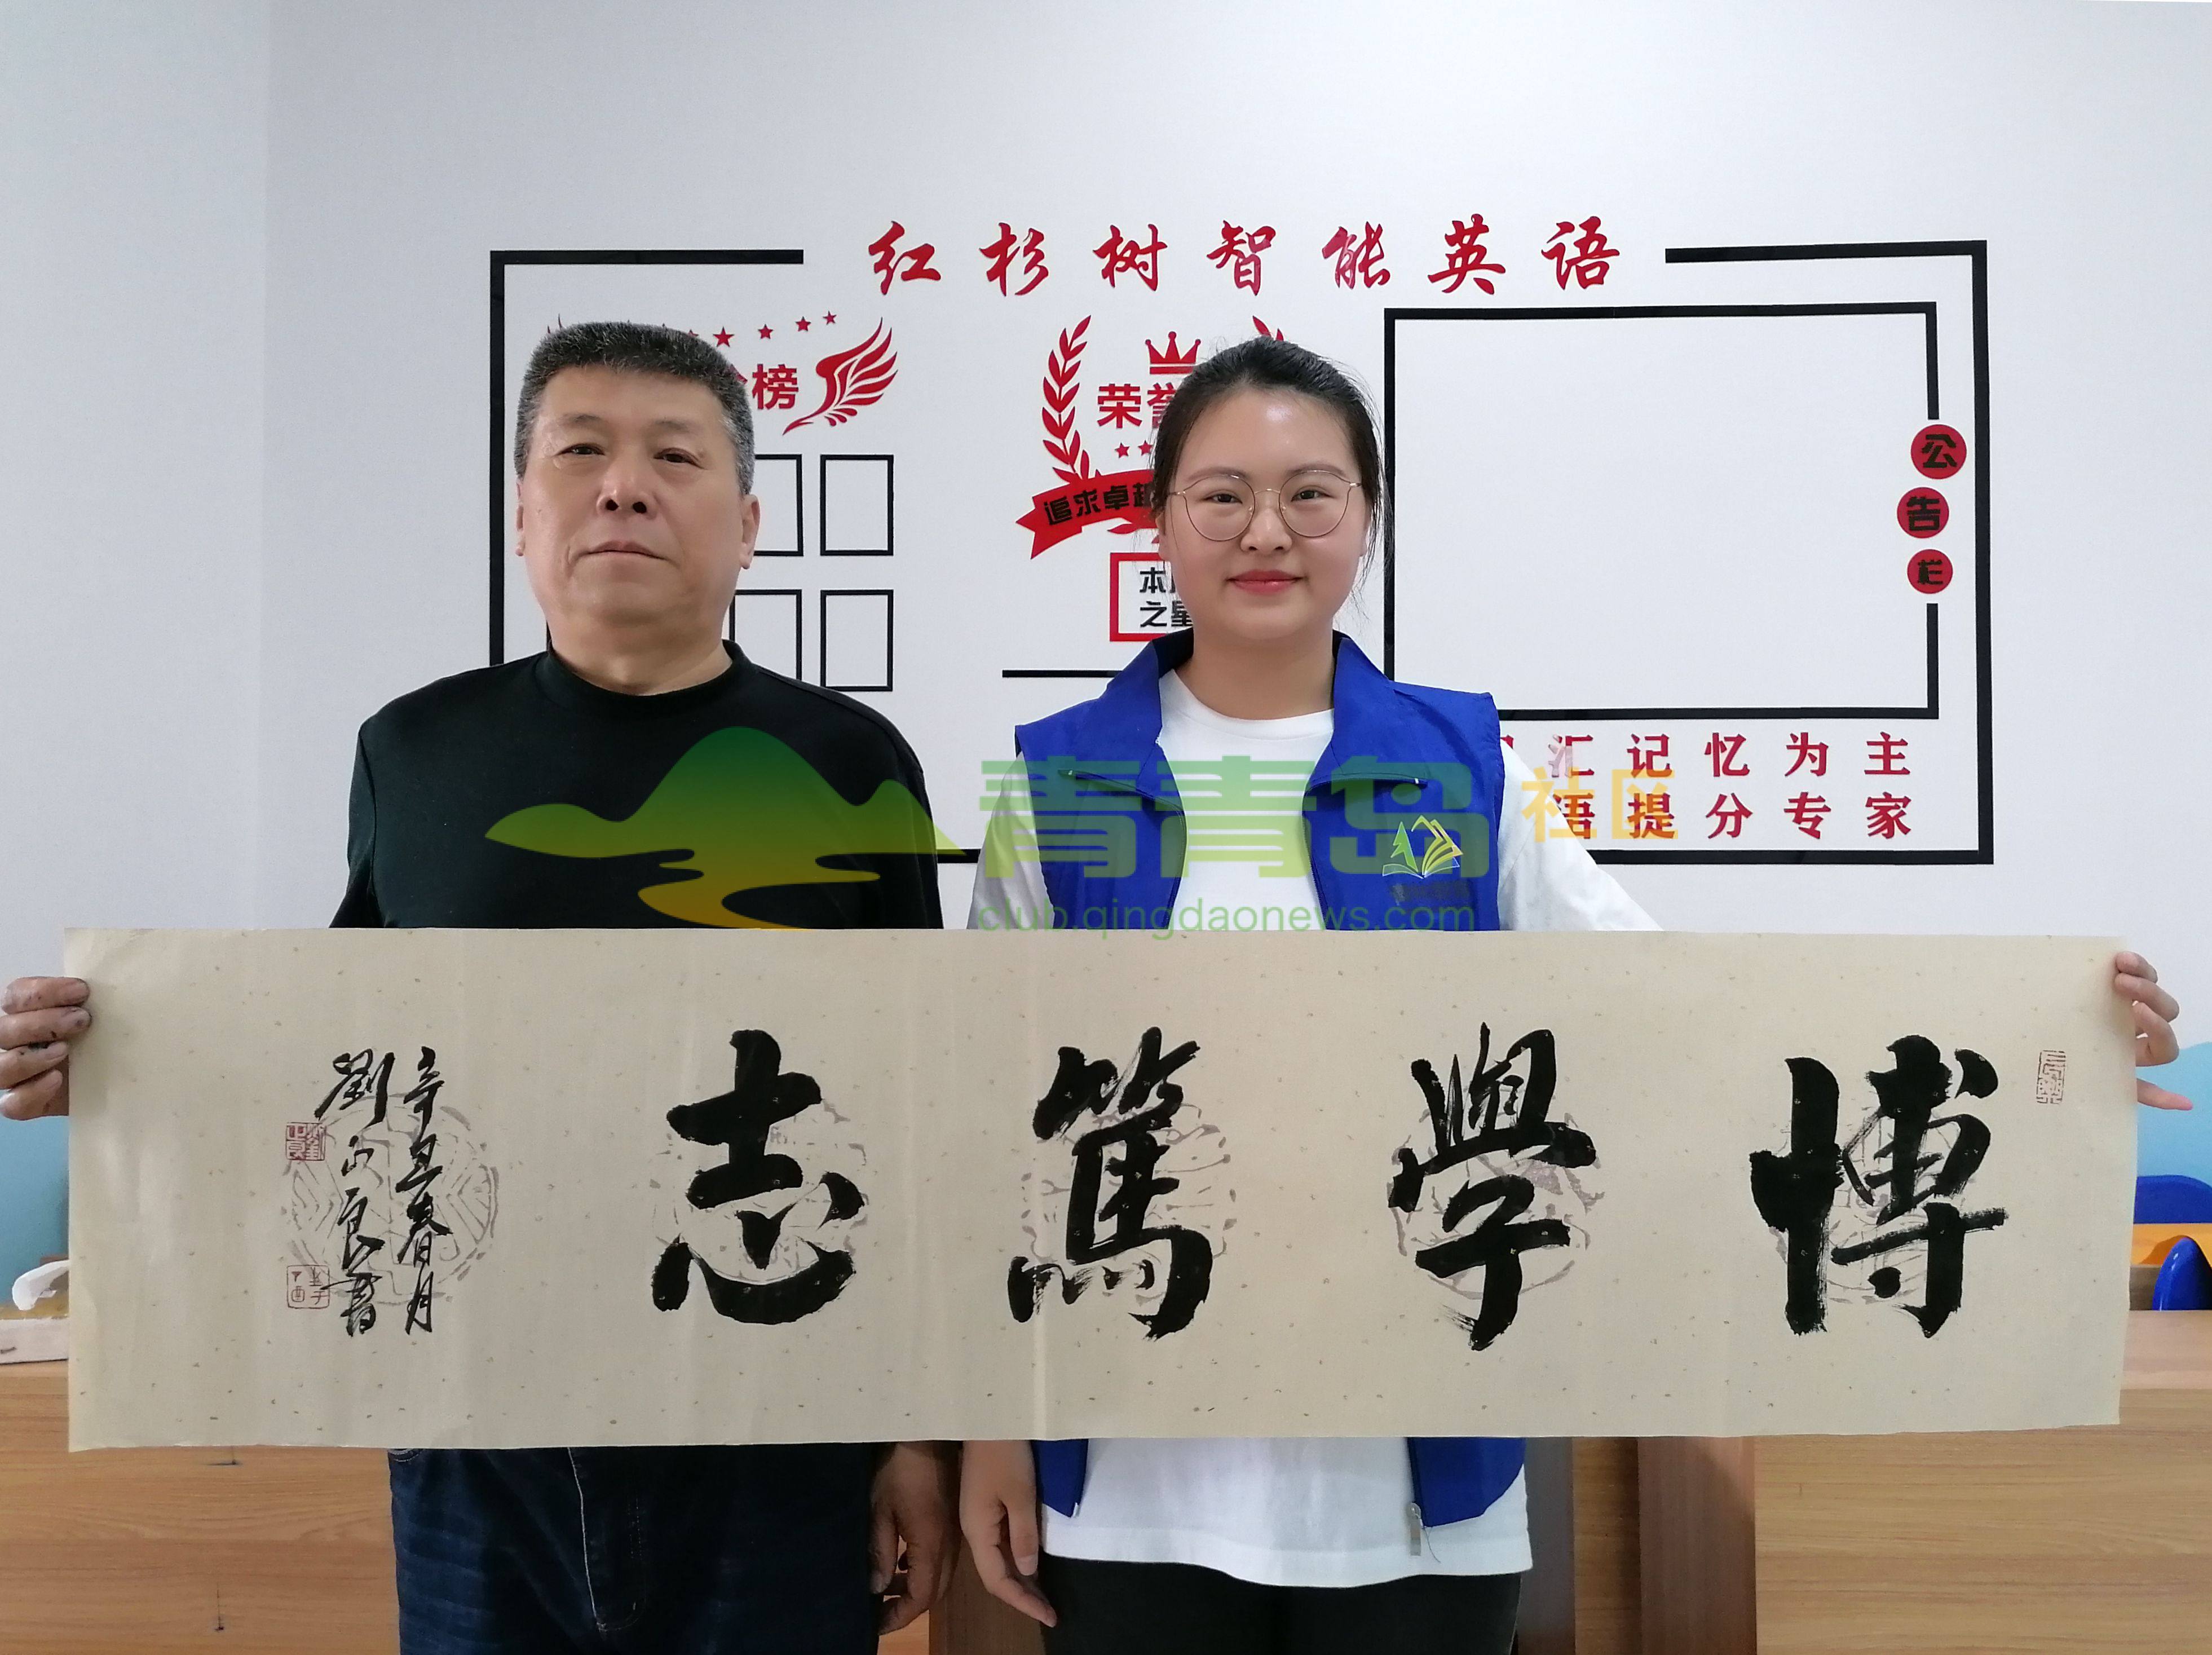 红杉树智能英语
榜
荣誉
追求卓越
本
之星
公告栏
汇记忆为主
语提分专家
青青岛社区
club.qingdaonews.com
博學篤志
辛丑春月
劉正良書